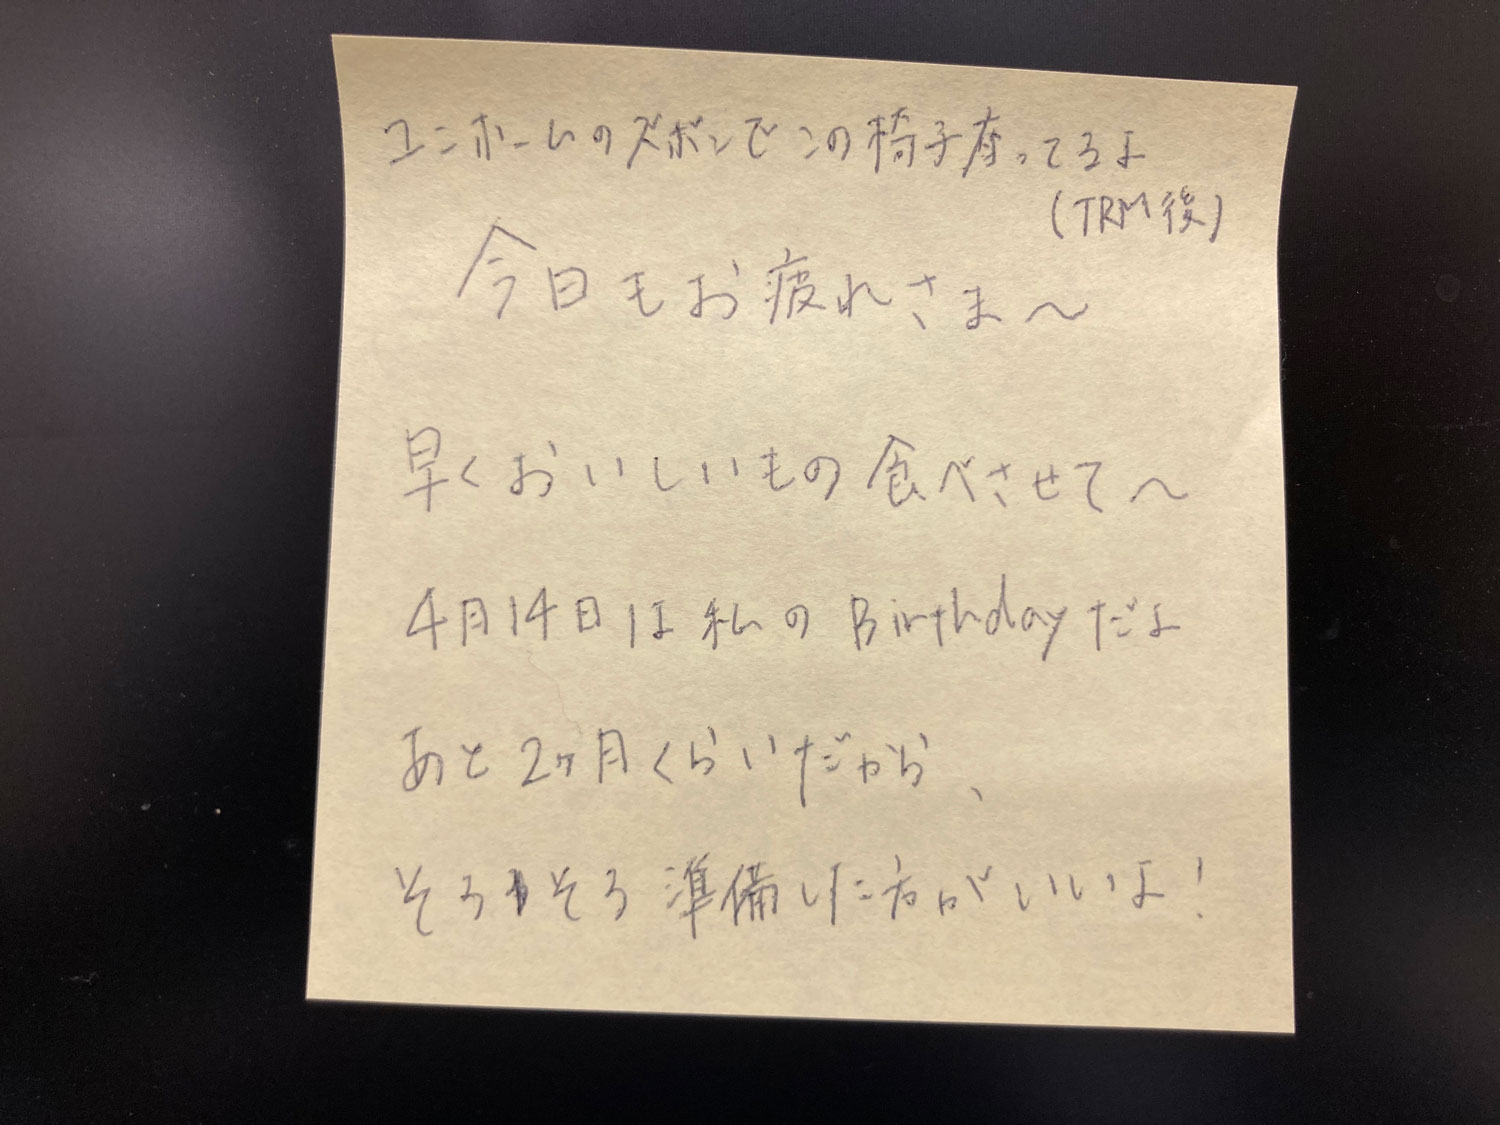 ユニホームのズボンでこの椅子座ってるよ
(TRM後)
今日もお疲れさま〜
早くおいしいもの食べさせて〜
4月14日は私のBirthdayだよ
あと2ヶ月くらいだから、
そろそろ準備した方がいいよ!